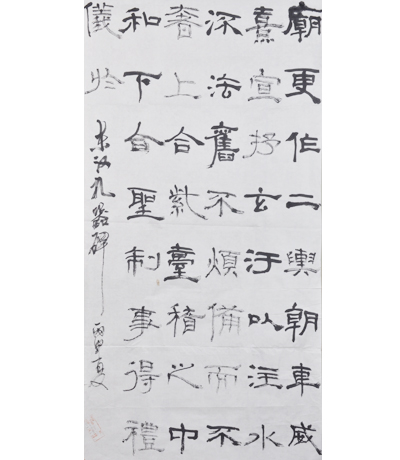 廟更作二輿朝車威
熹宣抒玄汙以注水
流法舊不煩備而不
奢上合紫臺稽之中
和下合聖制事得禮
儀於
东汉礼器碑
夏